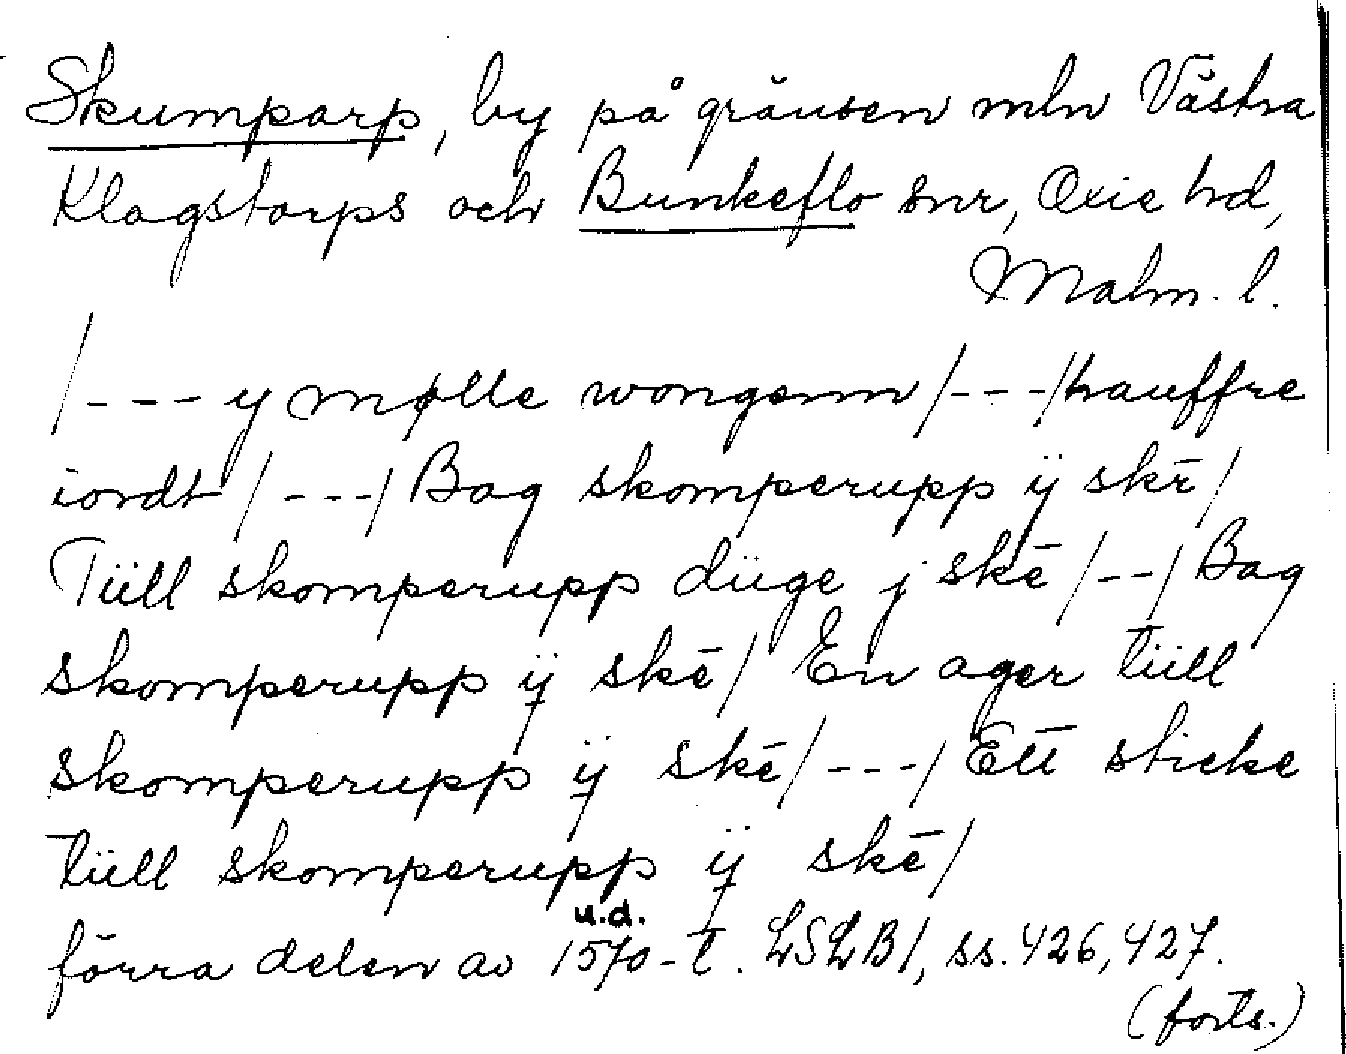 Skumparp, by på gränsen mln Västra
Klagstorps och Bunkeflo snr, Oxie hd,
Malm. l.
/--- y mølle wongenn /---/ hauffre
iordt /---/ Bag skomperupp ÿ skē /
Tüll skomperupp düge j skē /--/ Bag
skomperupp ÿ skē / En ager tüll
skomperupp ÿ skē /---/ Ett sticke
tüll skomperupp ÿ skē /
u.d.
förra delen av 1570-t. LSLB 1, ss. 426, 427.
(forts.)